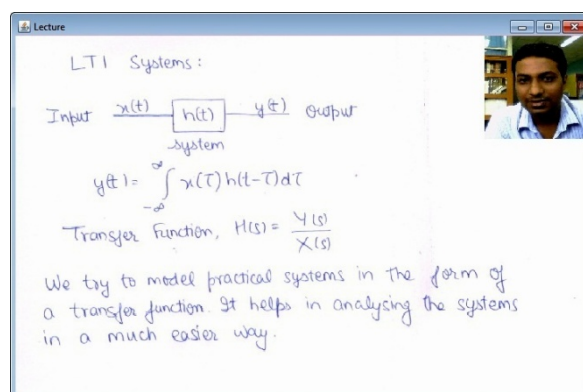 Lecture
LTI Systems:
Input x(t) h(t) y(t) Output
system
y(t) = ∫_{-∞}^{∞} x(τ) h(t-τ) dτ
Transfer Function, H(s) = Y(s)/X(s)
We try to model practical systems in the form of
a transfer function. It helps in analysing the systems
in a much easier way.